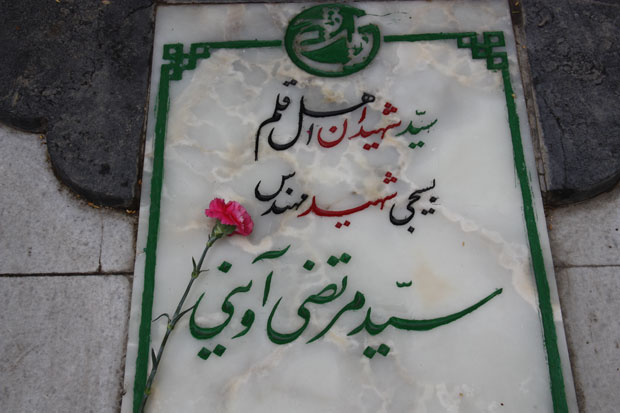 سیّد شهیدان اهل قلم
بسیجی شهید مهندس
سیّد مرتضی آوینی